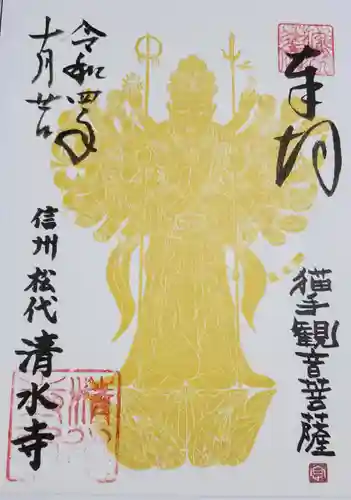 奉拝
猫手観音菩薩
令和四年
十月廿日
信州松代清水寺